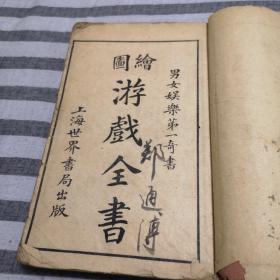 男女娛樂第一奇書
繪圖
游戲全書
鄭通溥
上海世界書局出版